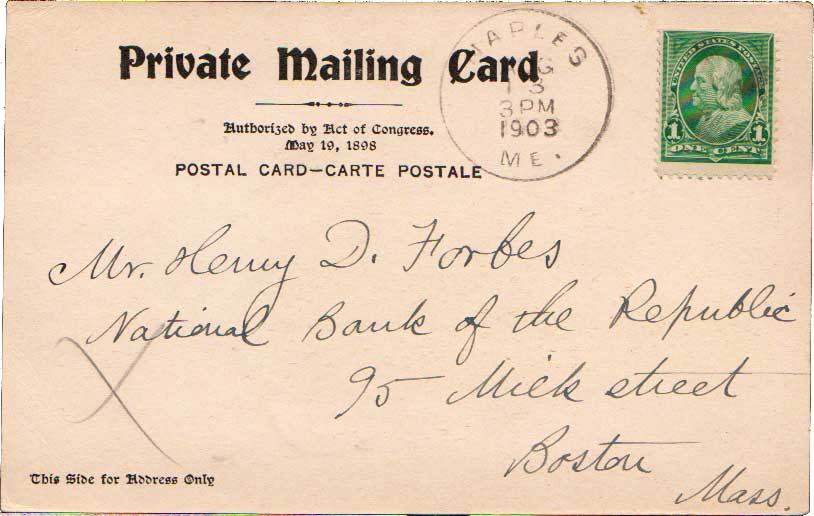 Private Mailing Card
Authorized by Act of Congress.
May 19, 1898
POSTAL CARD—CARTE POSTALE
NAPLES
3
3PM
1903
ME.
UNITED STATES POSTAGE
1 1
ONE CENT
Mr. Henry D. Forbes
National Bank of the Republic
95 Milk street
Boston
Mass.
This Side for Address Only